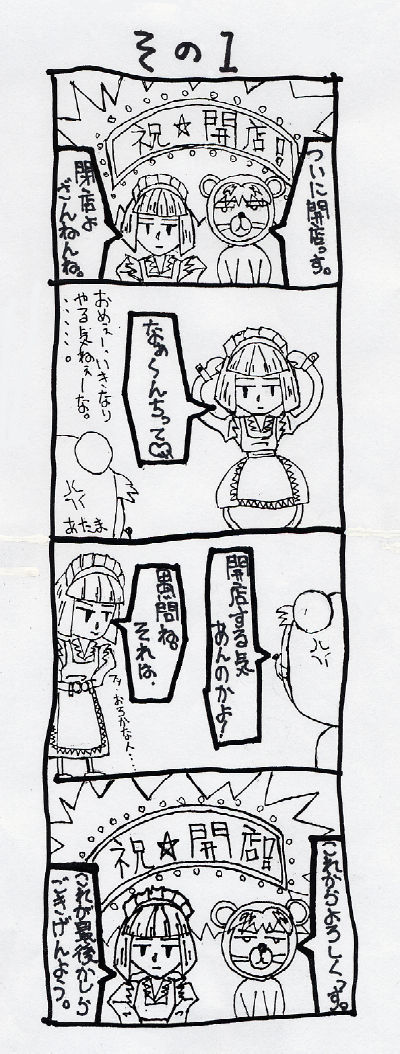 その1
祝☆開店!
ついに開店っす。
閉店よ
ざんねんね。
なぁくんちって♡
おめぇー、いきなり
やる気ねぇーな。
・・・・・。
あたま
開店する気
あんのかよ!
愚問ね。
それは、
プッ・おろかなん・・・
祝☆開店!!
これからよろしくっす。
これが最後かしら
ごきげんよう。